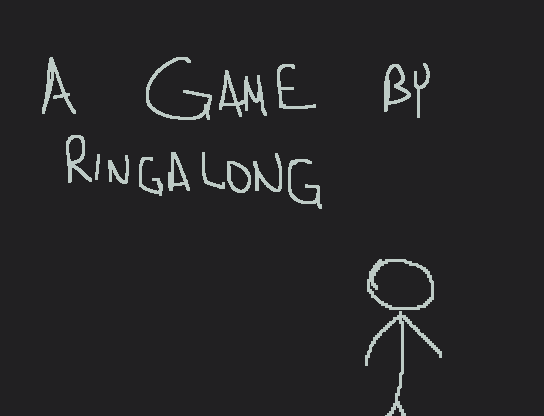 A GAME BY
RINGALONG